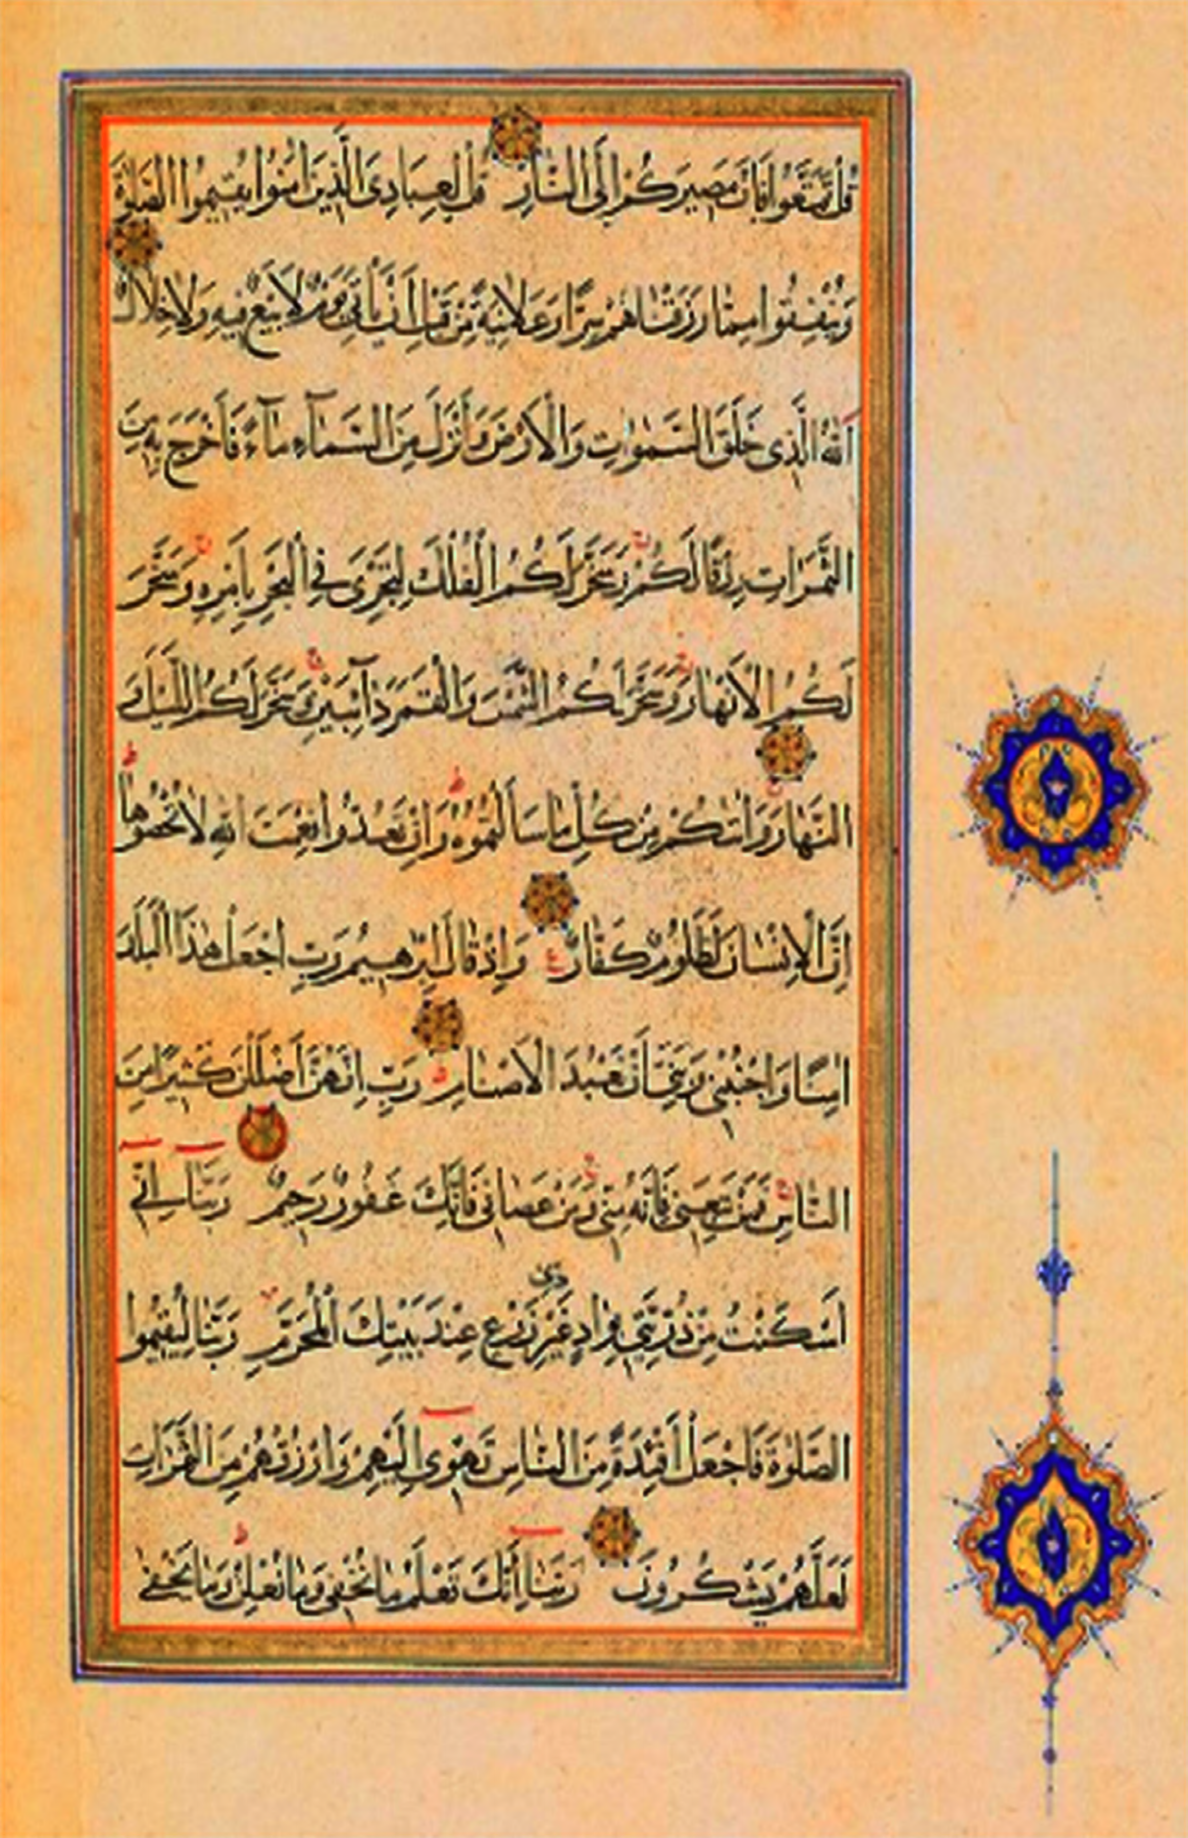 قُلْ تَمَتَّعُوا فَإِنَّ مَصِيرَكُمْ إِلَى النَّارِ قُلْ لِعِبَادِيَ الَّذِينَ آمَنُوا يُقِيمُوا الصَّلٰوةَ
وَيُنْفِقُوا مِمَّا رَزَقْنَاهُمْ سِرًّا وَعَلَانِيَةً مِنْ قَبْلِ أَنْ يَأْتِيَ يَوْمٌ لَا بَيْعٌ فِيهِ وَلَا خِلَالٌ
اَللّٰهُ الَّذِي خَلَقَ السَّمٰوَاتِ وَالْأَرْضَ وَأَنْزَلَ مِنَ السَّمَآءِ مَآءً فَأَخْرَجَ بِهِ مِنَ
الثَّمَرَاتِ رِزْقًا لَكُمْ وَسَخَّرَ لَكُمُ الْفُلْكَ لِتَجْرِيَ فِي الْبَحْرِ بِأَمْرِهِ وَسَخَّرَ
لَكُمُ الْأَنْهَارَ وَسَخَّرَ لَكُمُ الشَّمْسَ وَالْقَمَرَ دَآئِبَيْنِ وَسَخَّرَ لَكُمُ اللَّيْلَ وَ
النَّهَارَ وَاٰتٰكُمْ مِنْ كُلِّ مَا سَأَلْتُمُوهُ وَإِنْ تَعُدُّوا نِعْمَتَ اللّٰهِ لَا تُحْصُوهَا
إِنَّ الْإِنْسَانَ لَظَلُومٌ كَفَّارٌ وَإِذْ قَالَ إِبْرٰهِيمُ رَبِّ اجْعَلْ هٰذَا الْبَلَدَ
اٰمِنًا وَاجْنُبْنِي وَبَنِيَّ أَنْ نَعْبُدَ الْأَصْنَامَ رَبِّ إِنَّهُنَّ أَضْلَلْنَ كَثِيرًا مِنَ
النَّاسِ فَمَنْ تَبِعَنِي فَإِنَّهُ مِنِّي وَمَنْ عَصَانِي فَإِنَّكَ غَفُورٌ رَحِيمٌ رَبَّنَا إِنِّي
أَسْكَنْتُ مِنْ ذُرِّيَّتِي بِوَادٍ غَيْرِ ذِي زَرْعٍ عِنْدَ بَيْتِكَ الْمُحَرَّمِ رَبَّنَا لِيُقِيمُوا
الصَّلٰوةَ فَاجْعَلْ أَفْئِدَةً مِنَ النَّاسِ تَهْوِي إِلَيْهِمْ وَارْزُقْهُمْ مِنَ الثَّمَرَاتِ
لَعَلَّهُمْ يَشْكُرُونَ رَبَّنَا إِنَّكَ تَعْلَمُ مَا نُخْفِي وَمَا نُعْلِنُ وَمَا يَخْفٰى